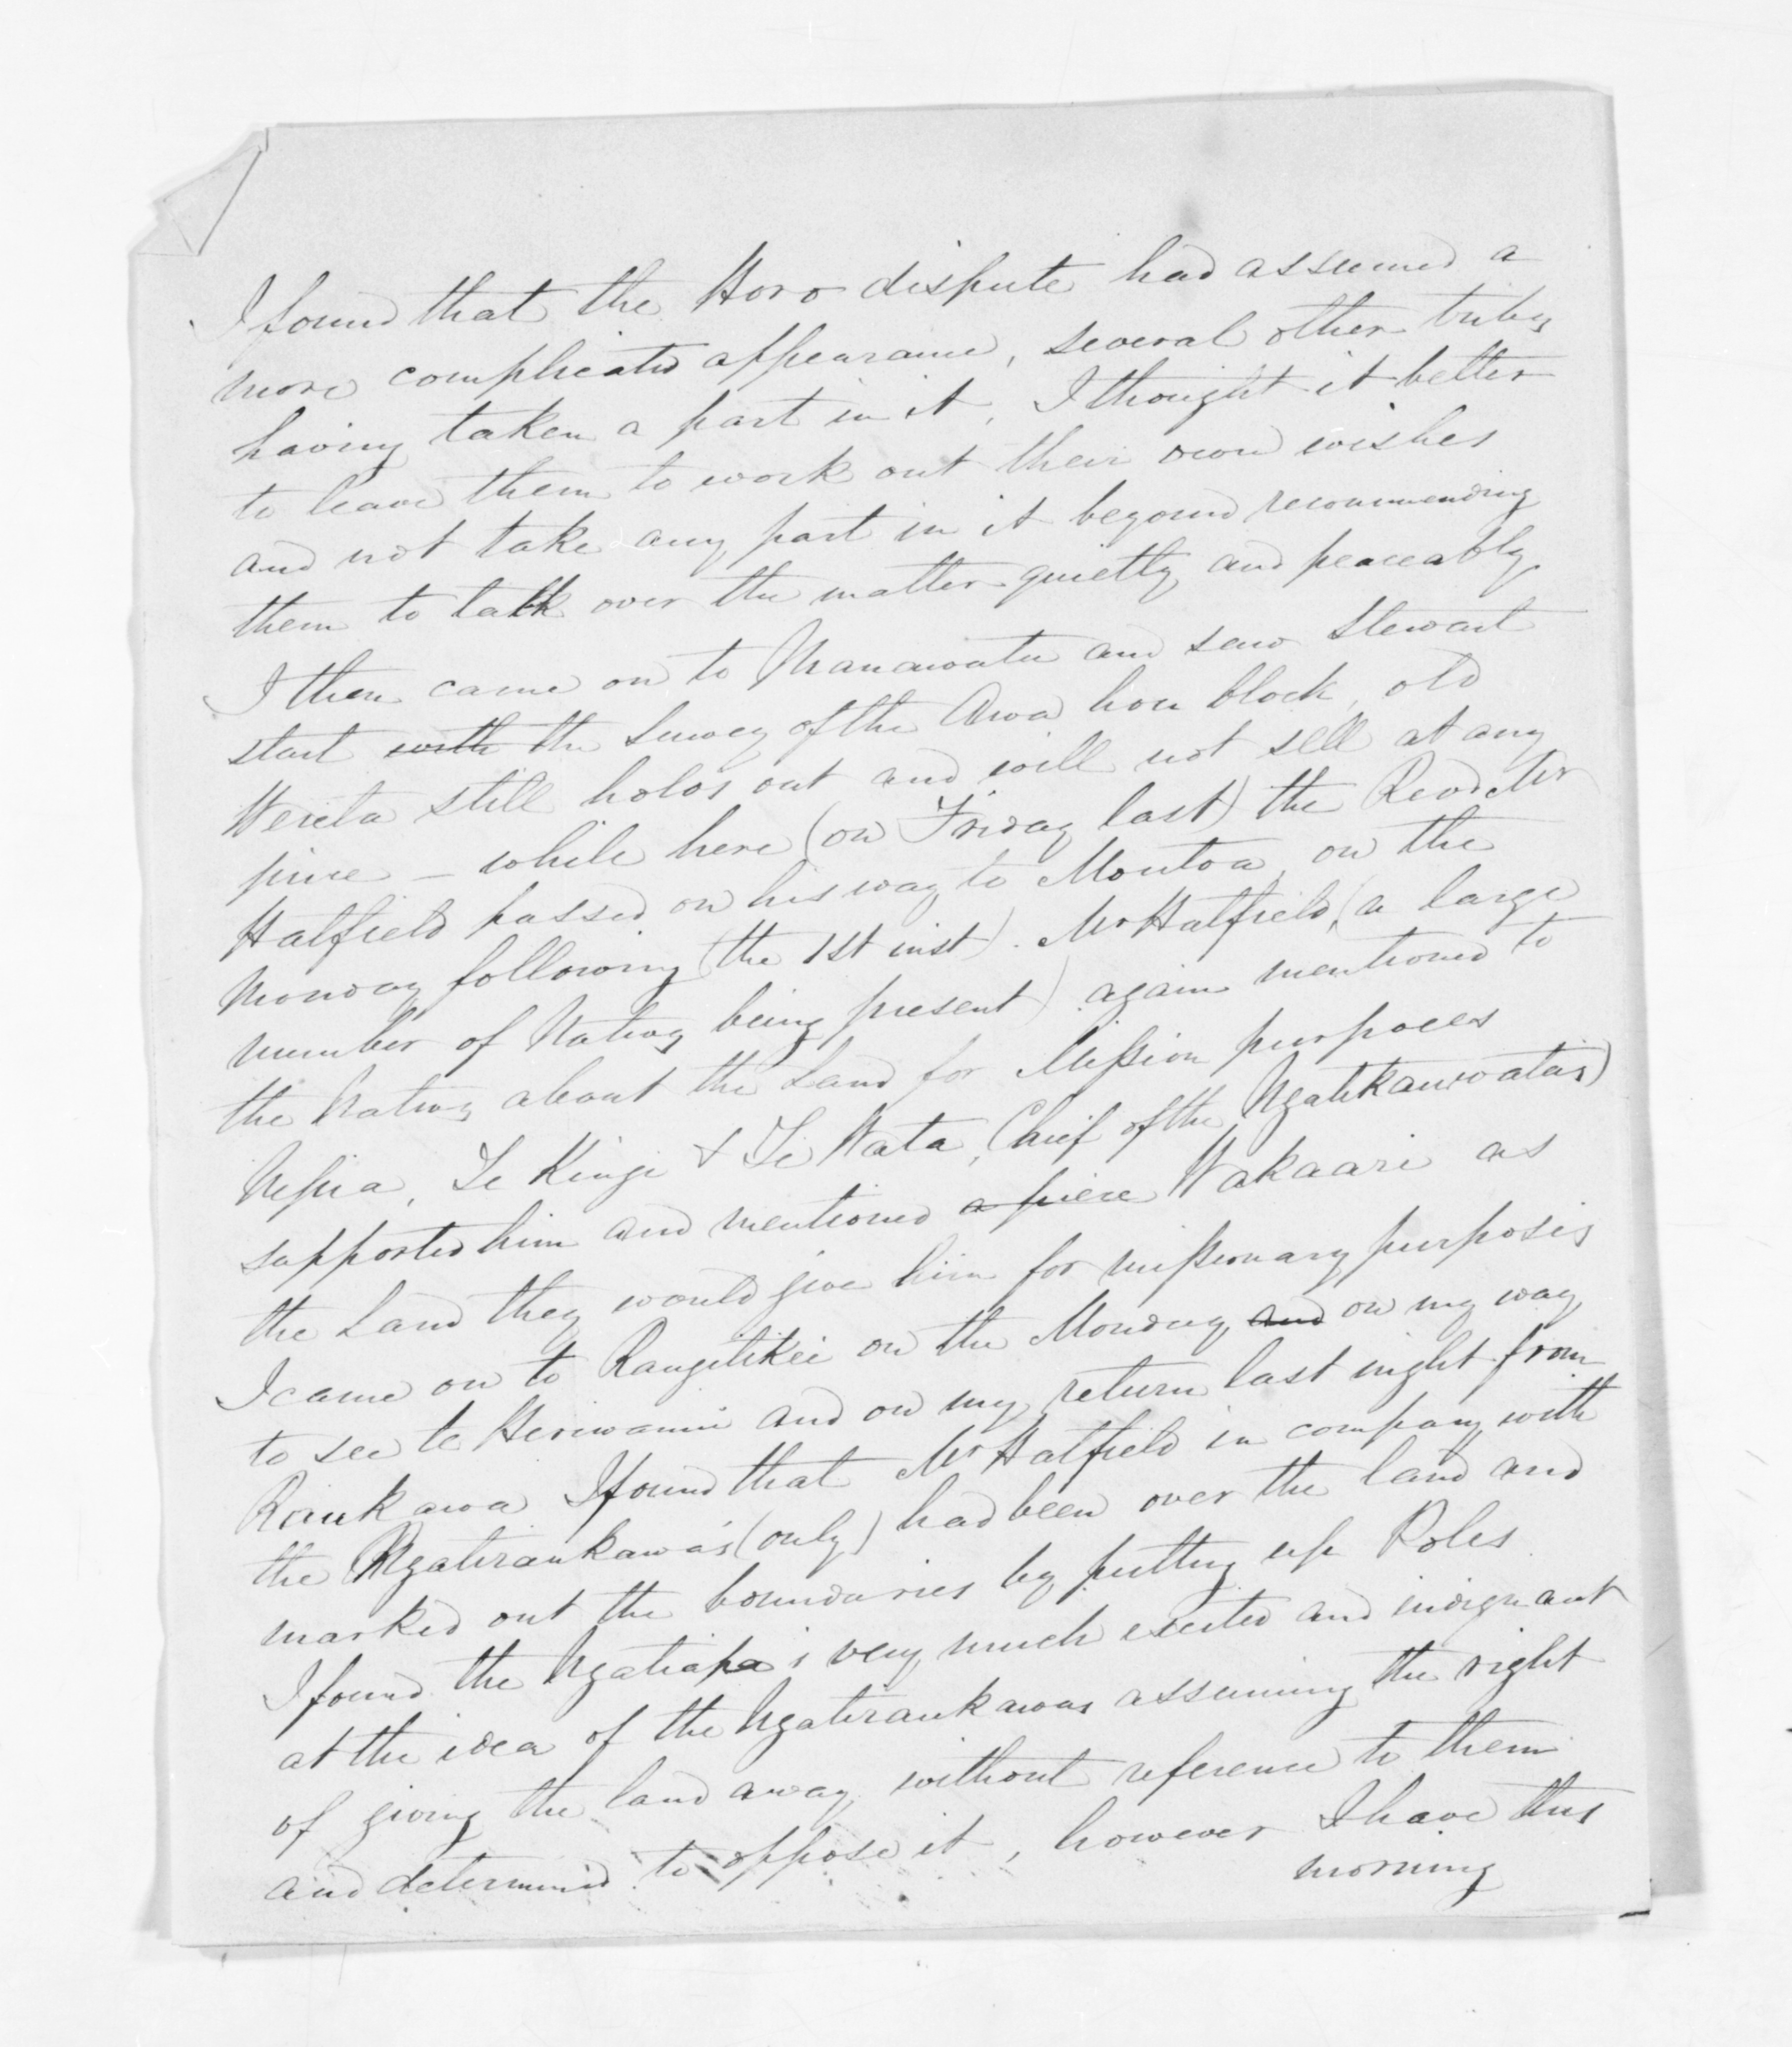 I found that the Horo dispute had assumed a
more complicated appearance, several other tribes
having taken a part in it, I thought it better
to leave them to work out their own wishes
and not take any part in it beyond recommending
them to talk over the matter quietly and peaceably
I then came on to Manawatu and saw Stewart
start with the Survey of the Awa hou block, old
Wereta still holds out and will not sell at any
price – while here (on Friday last) the Revd Mr
Hatfield passed on his way to Moutoa, on the
Monday following (the 1st inst). Mr Hatfield, (a large
number of Natives being present) again mentioned to
the Natives about the Land for Mission purposes
Nepia, Te Kingi & Te Wata, (Chief of the Ngatikauwatas)
supported him and mentioned a piece Wakaari as
the Land they would give him for missionary purposes
I came on to Rangitikei on the Monday and on my way
to see te Heriwanui and on my return last night from
Raukawa I found that Mr Hatfield in company with
the Ngatiraukawas (only) had been over the land and
marked out the boundaries by putting up Poles
I found the Ngatiapa's very much excited and indignant
at the idea of the Ngatiraukawas assuming the right
of giving the land away without reference to them
and determined to oppose it, however I have this
morning